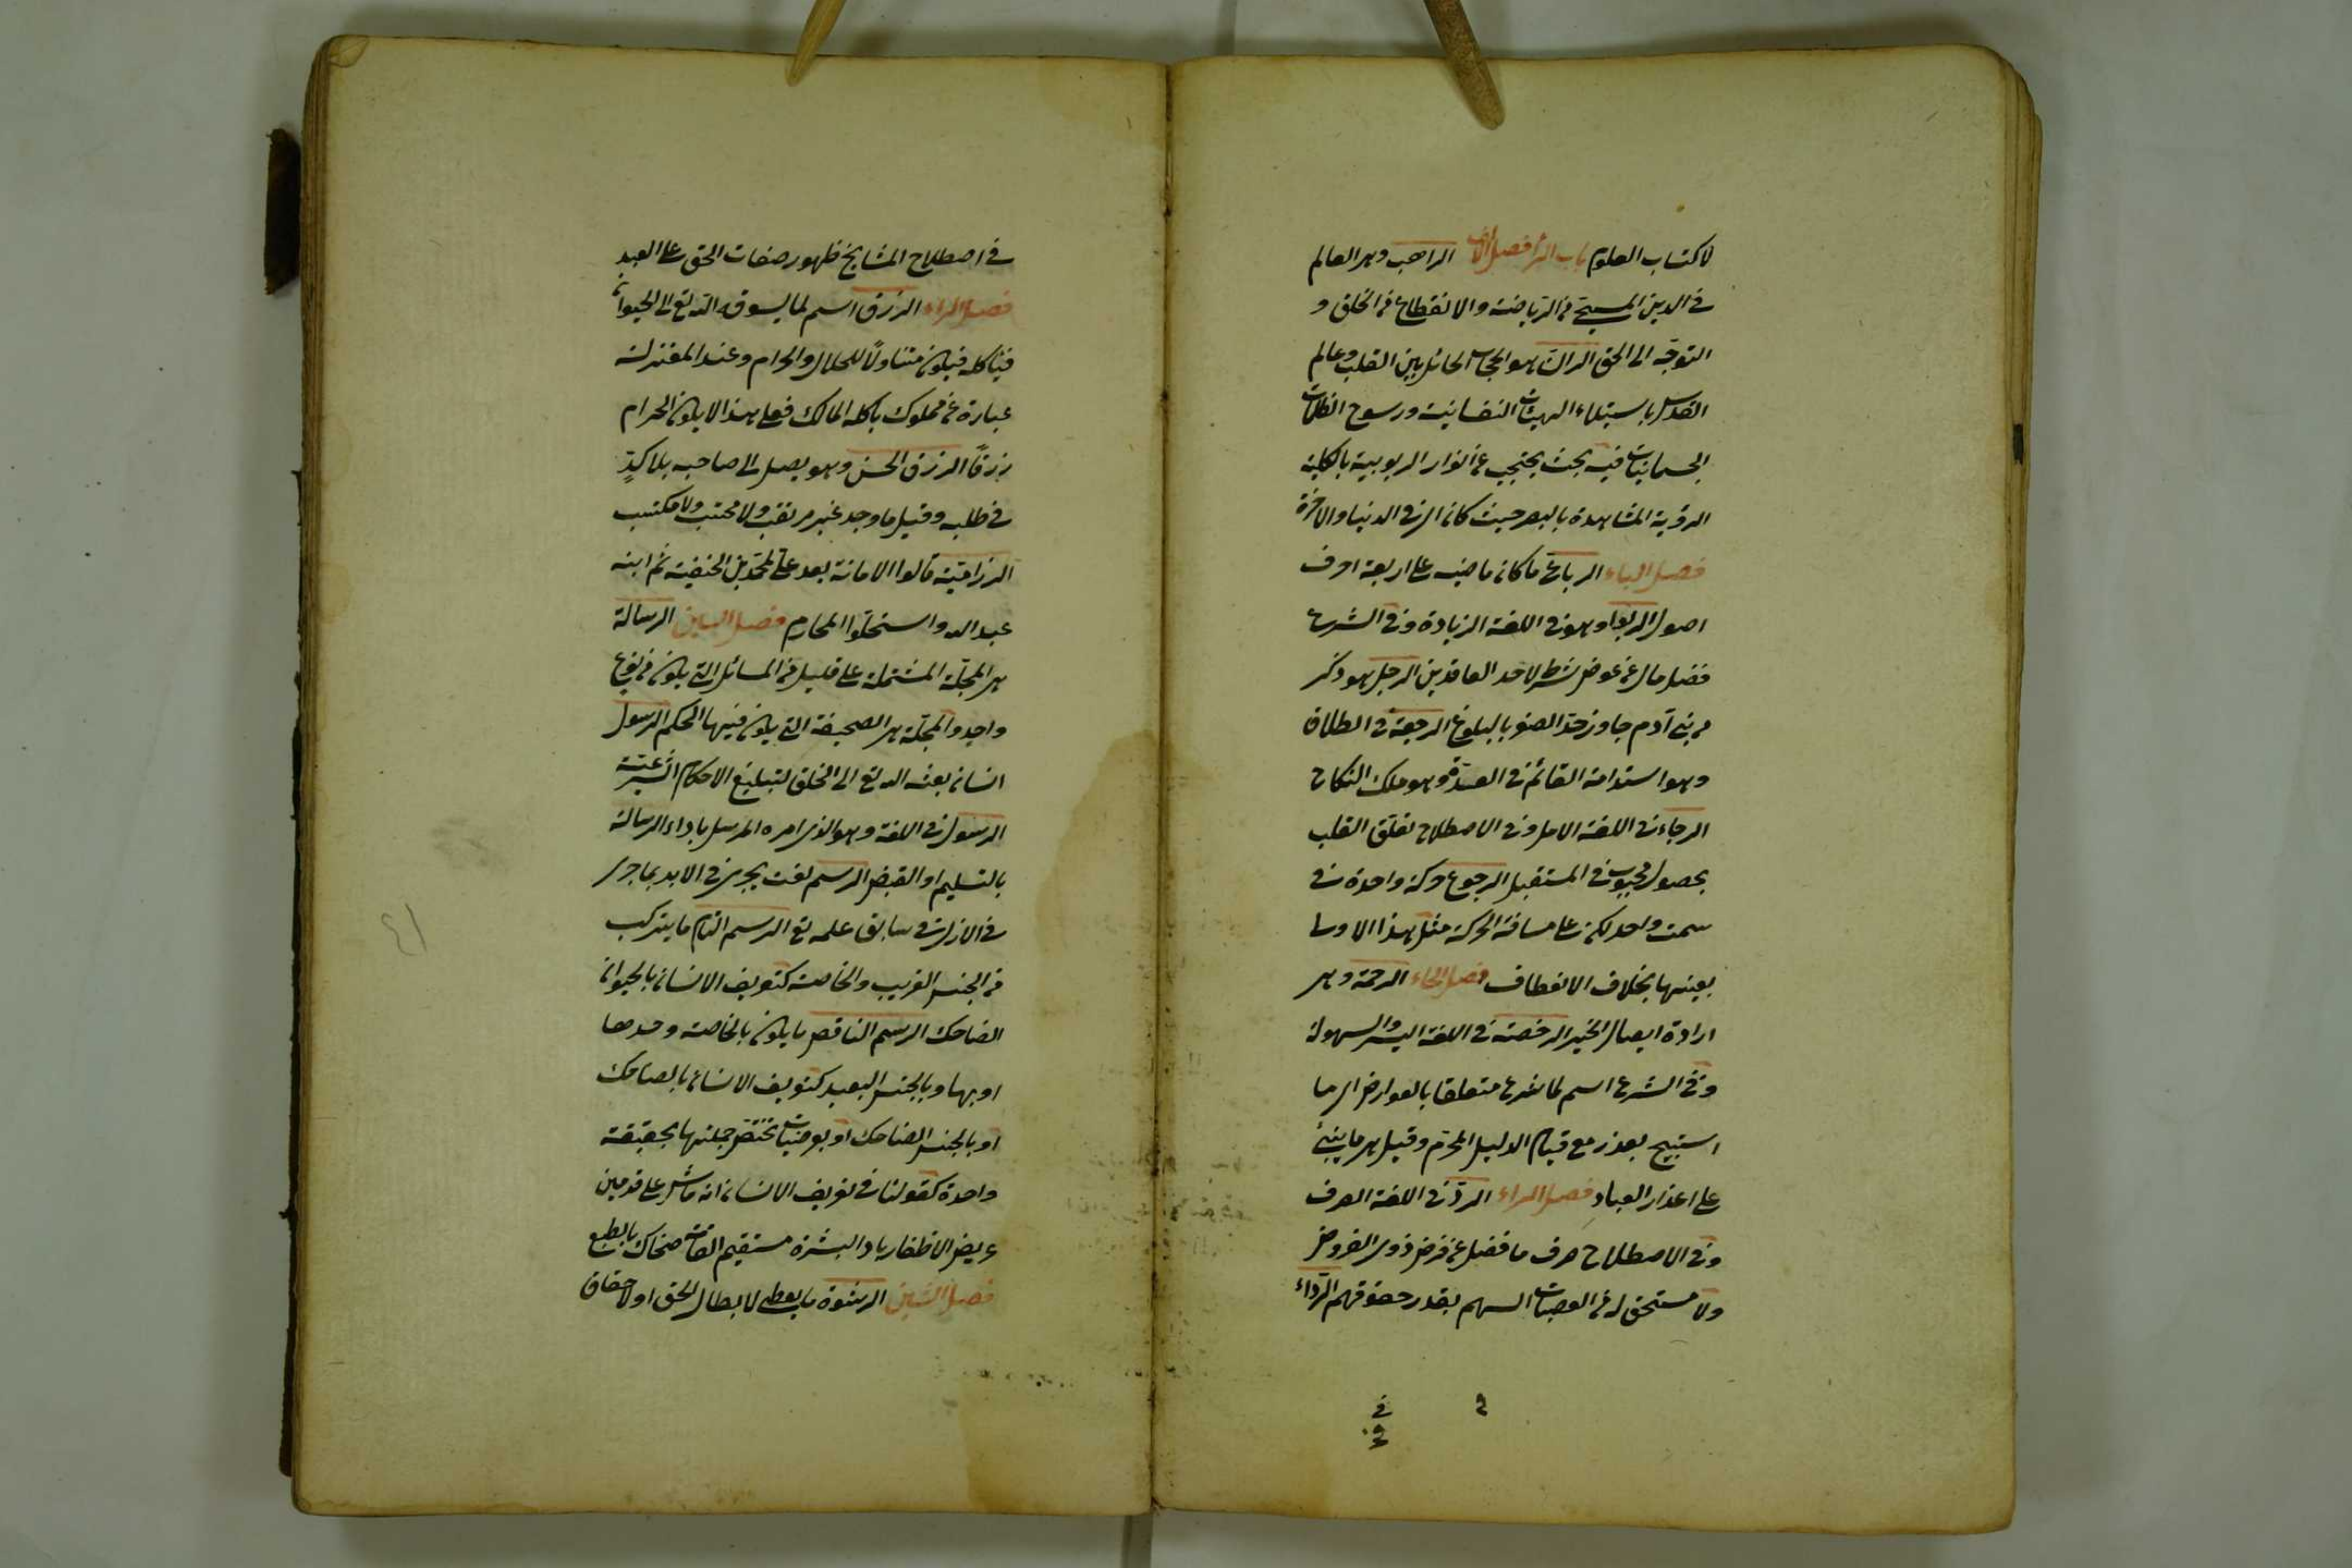 لاكتساب العلوم باب الراء فصل الالف الراهب وهر العالم
في الدين المسيحي من الرياضة والانقطاع من الخلق و
التوجه الى الحق الران هو الحجاب الحائل بين القلب وعالم
القدس باستيلاء الهيئات النفسانية ورسوخ الظلمات
الجسمانيات فيه بحيث يحتجب عن انوار الربوبية بالكلية
الرؤية المشاهدة بالبصر حيث كان اي في الدنيا والاخرة
فصل الباء الرباعي ما كان ماضيه على اربعة احرف
اصول الربوا وهو في اللغة الزيادة وفي الشرع
فضل مال عن عوض شرط لاحد العاقدين الرجل هو ذكر
من بني آدم جاوز حد الصغر بالبلوغ الرجعة في الطلاق
وهو استدامة القائم في العدة وهو ملك النكاح
الرجاء في اللغة الامل وفي الاصطلاح تعلق القلب
بحصول محبوب في المستقبل الرجوع حركة واحدة في
سمت واحد لكن على مسافة الحركة مثل هذا الاولى
بعينها بخلاف الانعطاف فصل الحاء الرحمة وهي
ارادة ايصال الخير الرخصة في اللغة اليسر والسهولة
وفي الشرع اسم لما شرع متعلقا بالعوارض اي ما
استبيح بعذر مع قيام الدليل المحرم وقيل هي ما يبنى
على اعذار العباد فصل الراء الرد في اللغة الصرف
وفي الاصطلاح صرف ما فضل عن فرض ذوي الفروض
ولا مستحق له من العصبات اليهم بقدر حقوقهم الرداء
في
في اصطلاح المشايخ ظهور صفات الحق على العبد
فصل الراء الرزق اسم لما يسوقه الله تع الى الحيوان
فيأكله فيكون متناولًا للحلال والحرام وعند المعتزلة
عبارة عن مملوك يأكله المالك فعلى هذا لا يكون الحرام
رزقًا الرزق الحسن وهو يصل الى صاحبه بلا كدٍّ
في طلبه وقيل ما وجد غير مرتقب ولا محتسب ولا مكتسب
الرزامية قالوا الامانة بعد علي لمحمد بن الحنفية ثم ابنه
عبد الله واستحلوا المحارم فصل السين الرسالة
هر المجلة المشتملة على قليل من المسائل التي يكون من نوع
واحد والمجلة هر الصحيفة التي يكون فيها الحكم الرسول
انسان بعثه الله تع الى الخلق لتبليغ الاحكام الشرعية
الرسول في اللغة وهو الذي امره المرسل باداء الرسالة
بالتسليم او القبض الرسم نعت يجري في الابد بما جرى
في الازل اي في سابق علمه تع الرسم التام ما يتركب
من الجنس القريب والخاصة كتعريف الانسان بالحيوان
الضاحك الرسم الناقص ما يكون بالخاصة وحدها
او بها وبالجنس البعيد كتعريف الانسان بالضاحك
او بالجسم الضاحك او بعرضيات تختص جملتها بحقيقة
واحدة كقولنا في تعريف الانسان انه ماش على قدمين
عريض الاظفار بادي البشرة مستقيم القامة ضحاك بالطبع
فصل الشين الرشوة ما يعطى لابطال الحق او لاحقاق
٤١